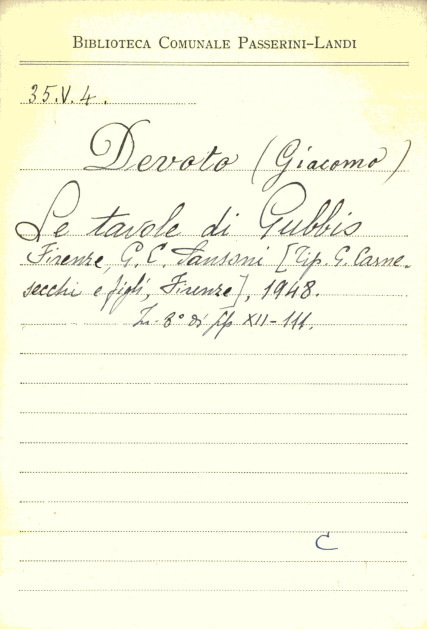 BIBLIOTECA COMUNALE PASSERINI-LANDI
35.V.4.
Devoto (Giacomo)
Le tavole di Gubbio
Firenze, G. C. Sansoni [Tip. G. Carne-
secchi e figli, Firenze], 1948.
In-8° di pp XII-111.
C